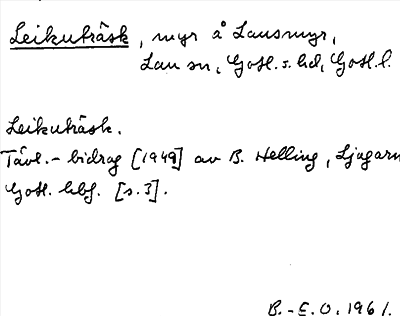 Leikuträsk, myr å Lausmyr,
Lau sn, Gotl. s. hd, Gotl. l.
Leikuträsk.
Tävl.-bidrag [1949] av B. Helling, Ljugarn
Gotl. hbf. [s. 3].
B.-E. O. 1961.